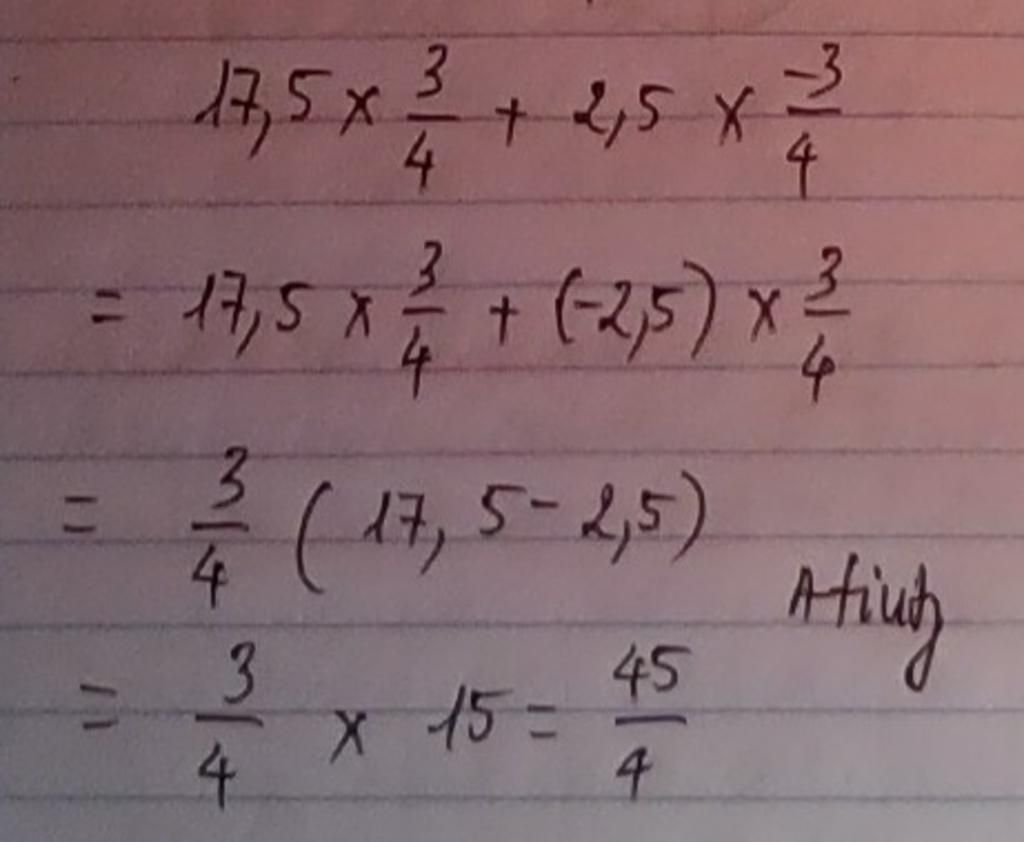 17,5 × 3/4 + 2,5 × -3/4
= 17,5 × 3/4 + (-2,5) × 3/4
= 3/4 ( 17,5 - 2,5)
= 3/4 × 15 = 45/4